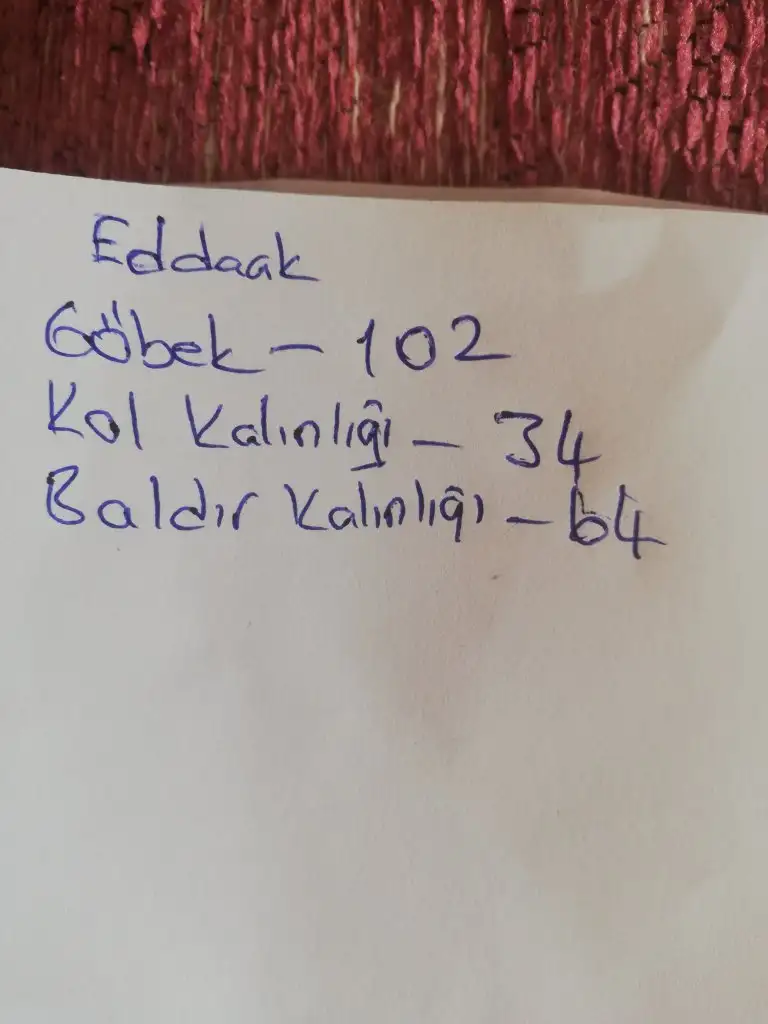 Eddaak
Göbek - 102
Kol Kalınlığı - 34
Baldır Kalınlığı - 64